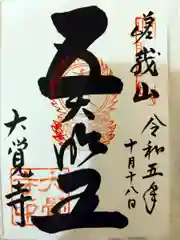 嵯峨山
令和五年
十月十八日
五大明王
大覚寺